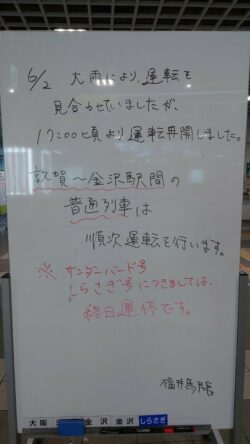 6/2 大雨により、運転を
見合わせていましたが、
17:00頃より運転再開しました。
敦賀〜金沢駅間の
普通列車は
順次運転を行います。
※ サンダーバード号
しらさぎ号につきましては、
終日運休です。
福井駅長
大阪 金沢 金沢 しらさぎ